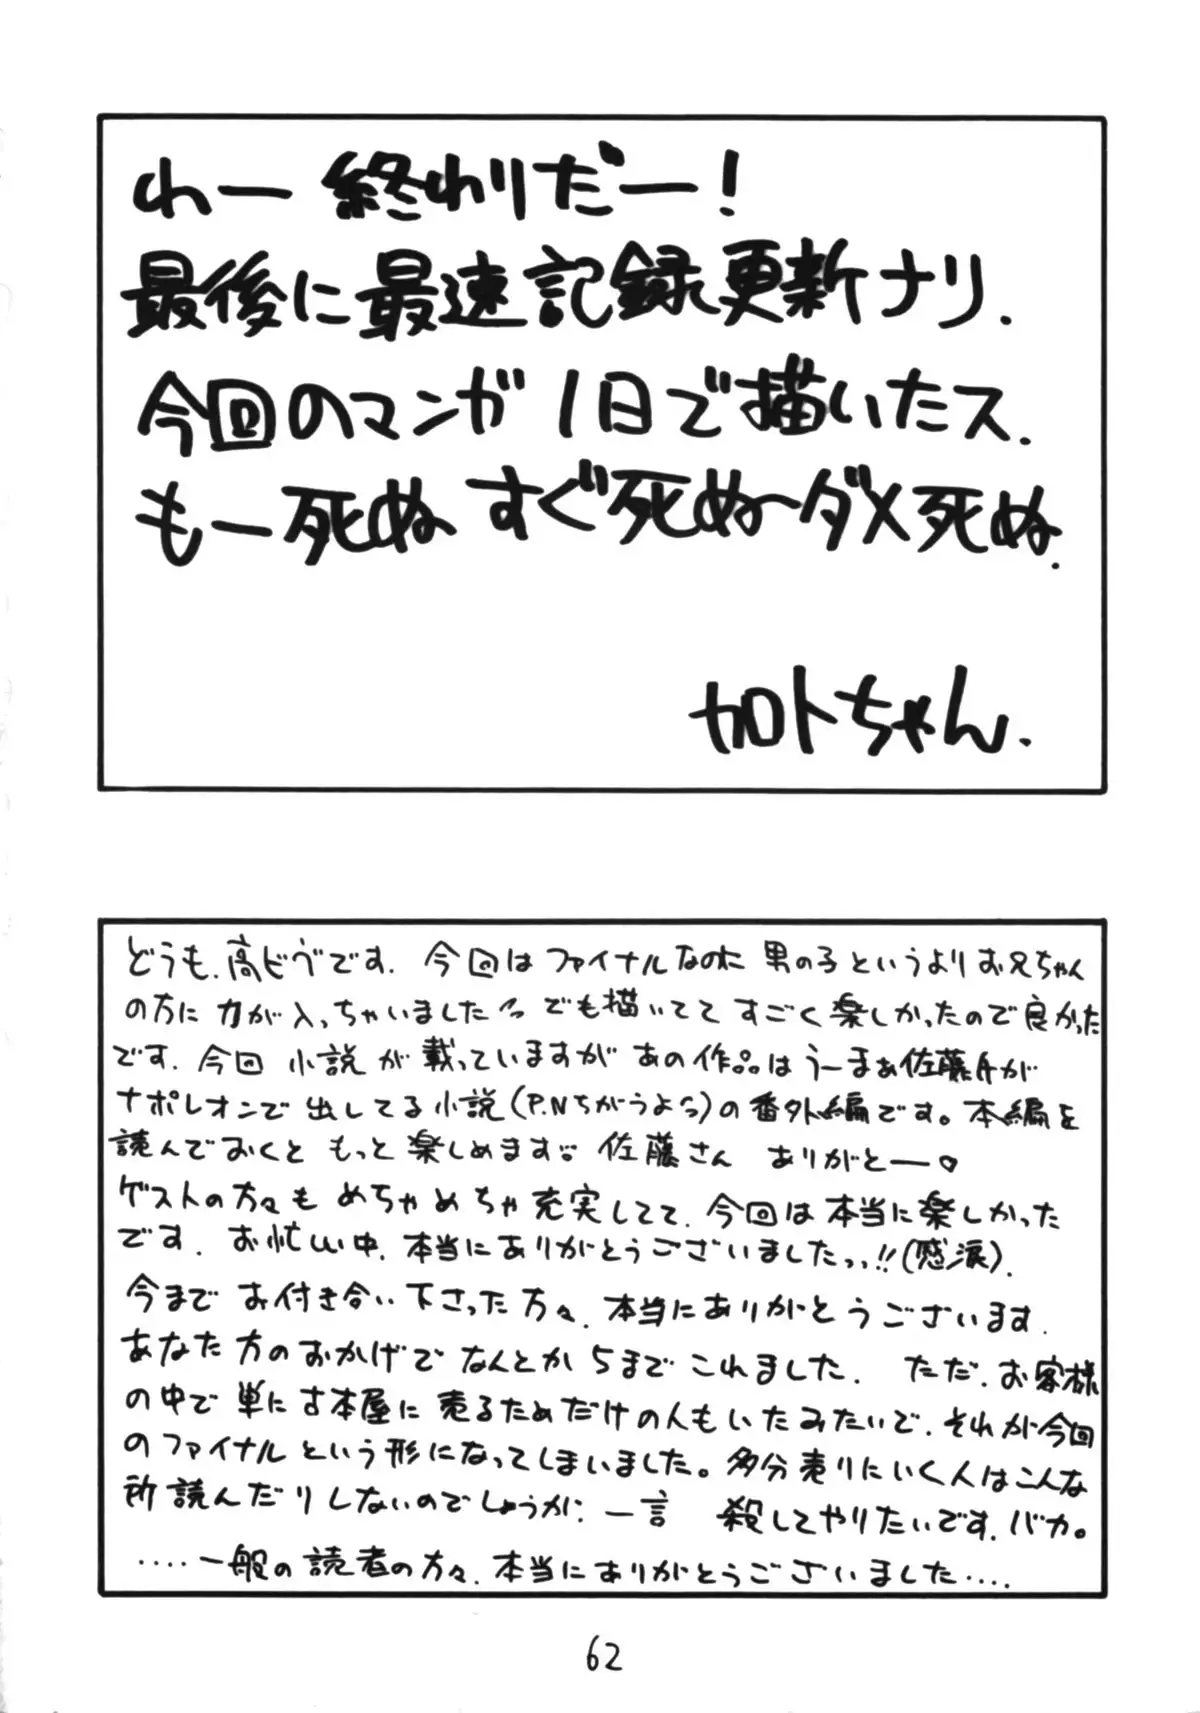 わー 終わりだー!
最後に最速記録更新ナリ.
今回のマンガ1日で描いたス.
もー死ぬ すぐ死ぬ〜ダメ死ぬ.
カロトちゃん.
どうも.高ビヴです. 今回は ファイナルなのに 男の子というよりお兄ちゃん
の方に 力が入っちゃいました でも描いてて すごく楽しかったので良かった
です. 今回 小説が 載っていますが あの作品は うーまぁ佐藤氏が
ナポレオンで 出してる小説(P.Nちがうよう)の番外編です。本編を
読んでおくと もっと楽しめます 佐藤さん ありがとー♡
ゲストの方々も めちゃめちゃ充実してて. 今回は本当に楽しかった
です. お忙しい中. 本当にありがとうございましたっっ!!(感涙).
今まで お付き合い下さった方々. 本当にありがとうございます.
あなた方のおかげで なんとか5まで これました. ただ.お客様
の中で 単に古本屋に 売るためだけの人もいたみたいで.それが今回
のファイナル という形になってしまいました。多分売りにいく人はこんな
所読んだりしないのでしょうが. 一言 殺してやりたいです.バカ。
....一般の読者の方々.本当にありがとうございました....
62